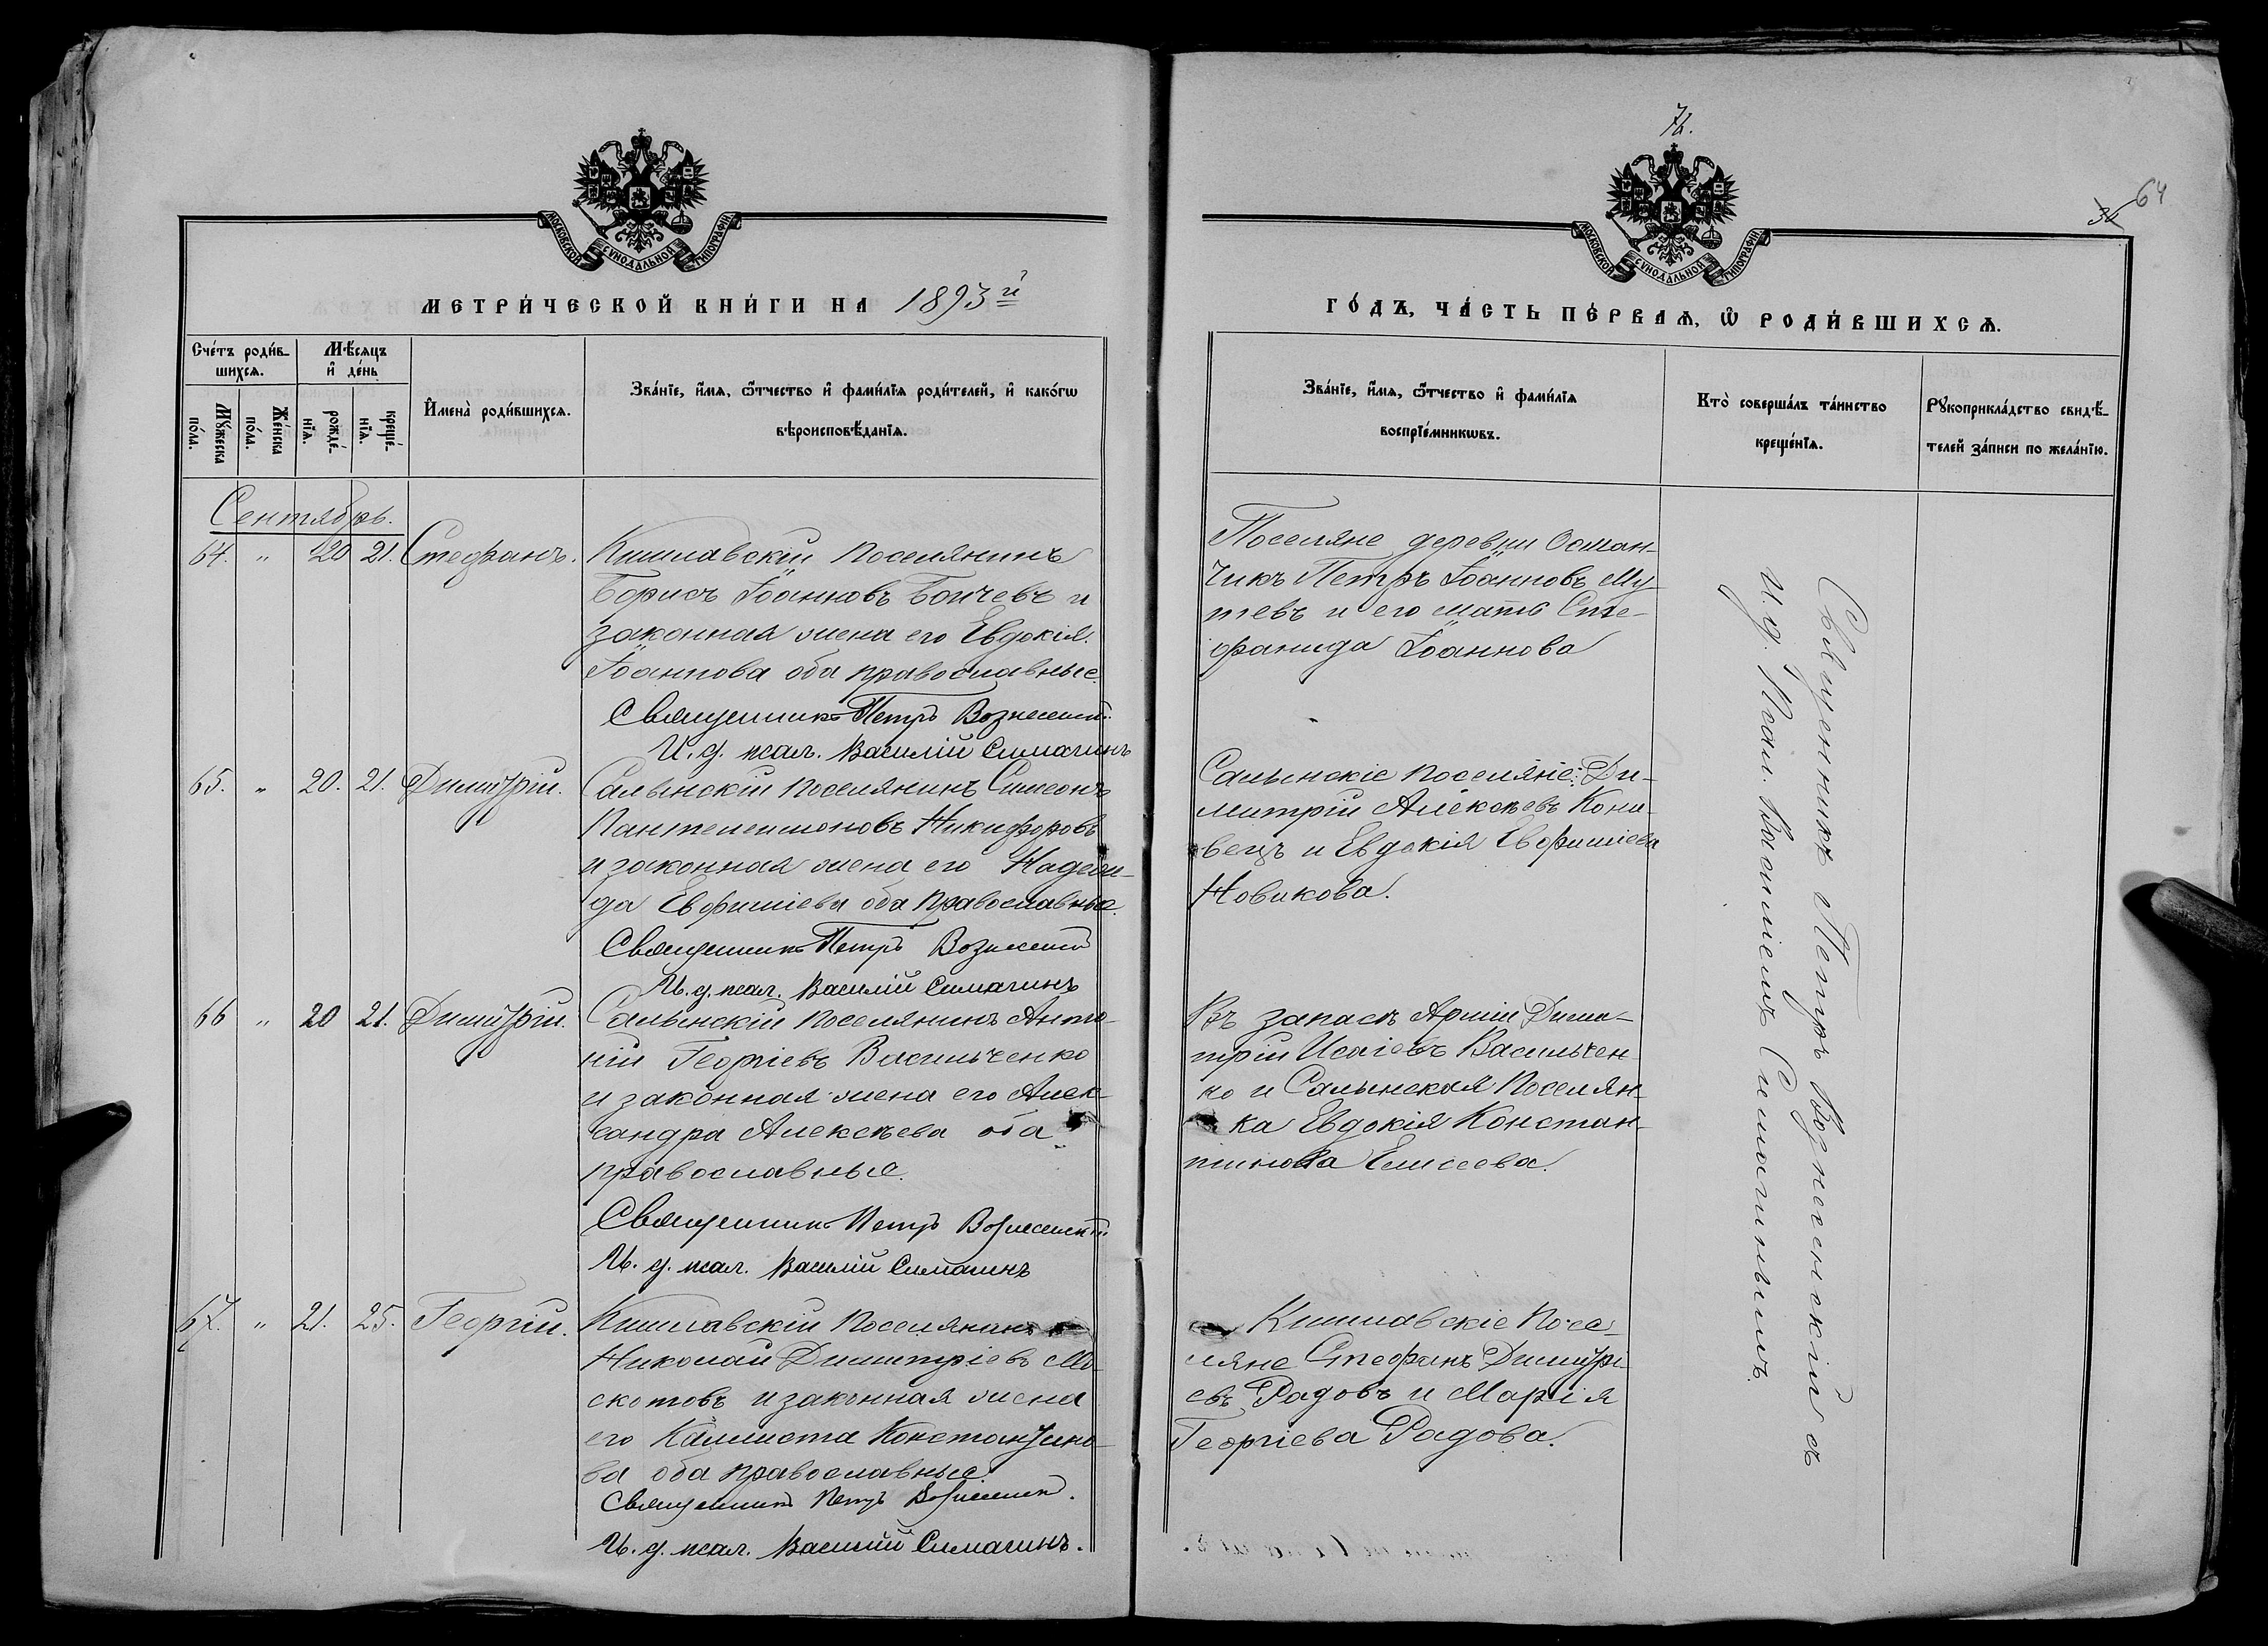 МОСКОВСКОЙ СѴНОДАЛЬНОЙ ТИПОГРАФІИ
МЕТРИ́ЧЕСКОЙ КНИ́ГИ НА 1893й
Сче́тъ роди́в-
шихсѧ.
Мѣ́сѧцъ
и҆ де́нь
Мꙋ́жеска
по́ла.
Же́нска
по́ла.
рожде́-
нїѧ.
креще́-
нїѧ.
И҆мена̀ роди́вшихсѧ.
Зва́нїе, и҆́мѧ, ѻ҆́тчество и҆ фами́лїѧ роди́телей, и҆ како́гѡ
вѣроисповѣ́данїѧ.
Сентябрь.
64. " 20 21. Стефанъ.
Кишлавскій поселянинъ
Борисъ Іоанновъ Бончевъ и
законная жена его Евдокія
Іоаннова оба православные.
Священникъ Петръ Вознесенскій
И. д. псал. Василій Симагинъ
65. " 20. 21. Димитрій.
Салынскій поселянинъ Симеонъ
Пантелеимоновъ Никифоровъ
и законная жена его Надеж-
да Евфиміева оба православные.
Священникъ Петръ Вознесенскій
И. д. псал. Василій Симагинъ
66 " 20 21. Димитрій.
Салынскій поселянинъ Анто-
ній Георгіевъ Васильченко
и законная жена его Алек-
сандра Алексѣева оба
православные.
Священникъ Петръ Вознесенскій
И. д. псал. Василій Симагинъ
67. " 21. 25. Георгій.
Кишлавскій поселянинъ
Николай Димитріевъ Мо-
скотовъ и законная жена
его Каллиста Константино-
ва оба православные.
Священникъ Петръ Вознесенскій.
И. д. псал. Василій Симагинъ.
64
МОСКОВСКОЙ СѴНОДАЛЬНОЙ ТИПОГРАФІИ
ГО́ДЪ, ЧА́СТЬ ПЕ́РВАѦ, Ѡ҆ РОДИ́ВШИХСѦ.
Зва́нїе, и҆́мѧ, ѻ҆́тчество и҆ фами́лїѧ
воспрїе́мникѡвъ.
Кто̀ соверша́лъ та́инство
креще́нїѧ.
Рꙋкоприкла́дство свидѣ́-
телей за́писи по жела́нїю.
Поселяне деревни Осман-
чикъ Петръ Іоанновъ Му-
тевъ и его мать Сте-
фанида Іоаннова
Салынскіе поселяне: Ди-
митрій Алексѣевъ Кони-
вецъ и Евдокія Евфиміева
Новикова.
Въ запасѣ Арміи Дими-
трій Исаіевъ Васильчен-
ко и Салынская поселян-
ка Евдокія Констан-
тинова Елисеева.
Кишлавскіе Посе-
ляне Стефанъ Димитрі-
евъ Радовъ и Марія
Георгіева Радова.
Священникъ Петръ Вознесенскій съ
И. д. Псал. Василіемъ Симагинымъ.